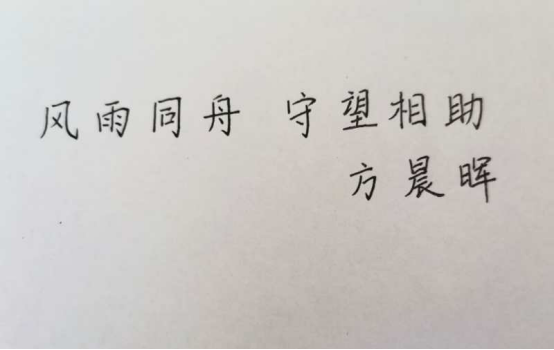 风雨同舟 守望相助
方晨晖